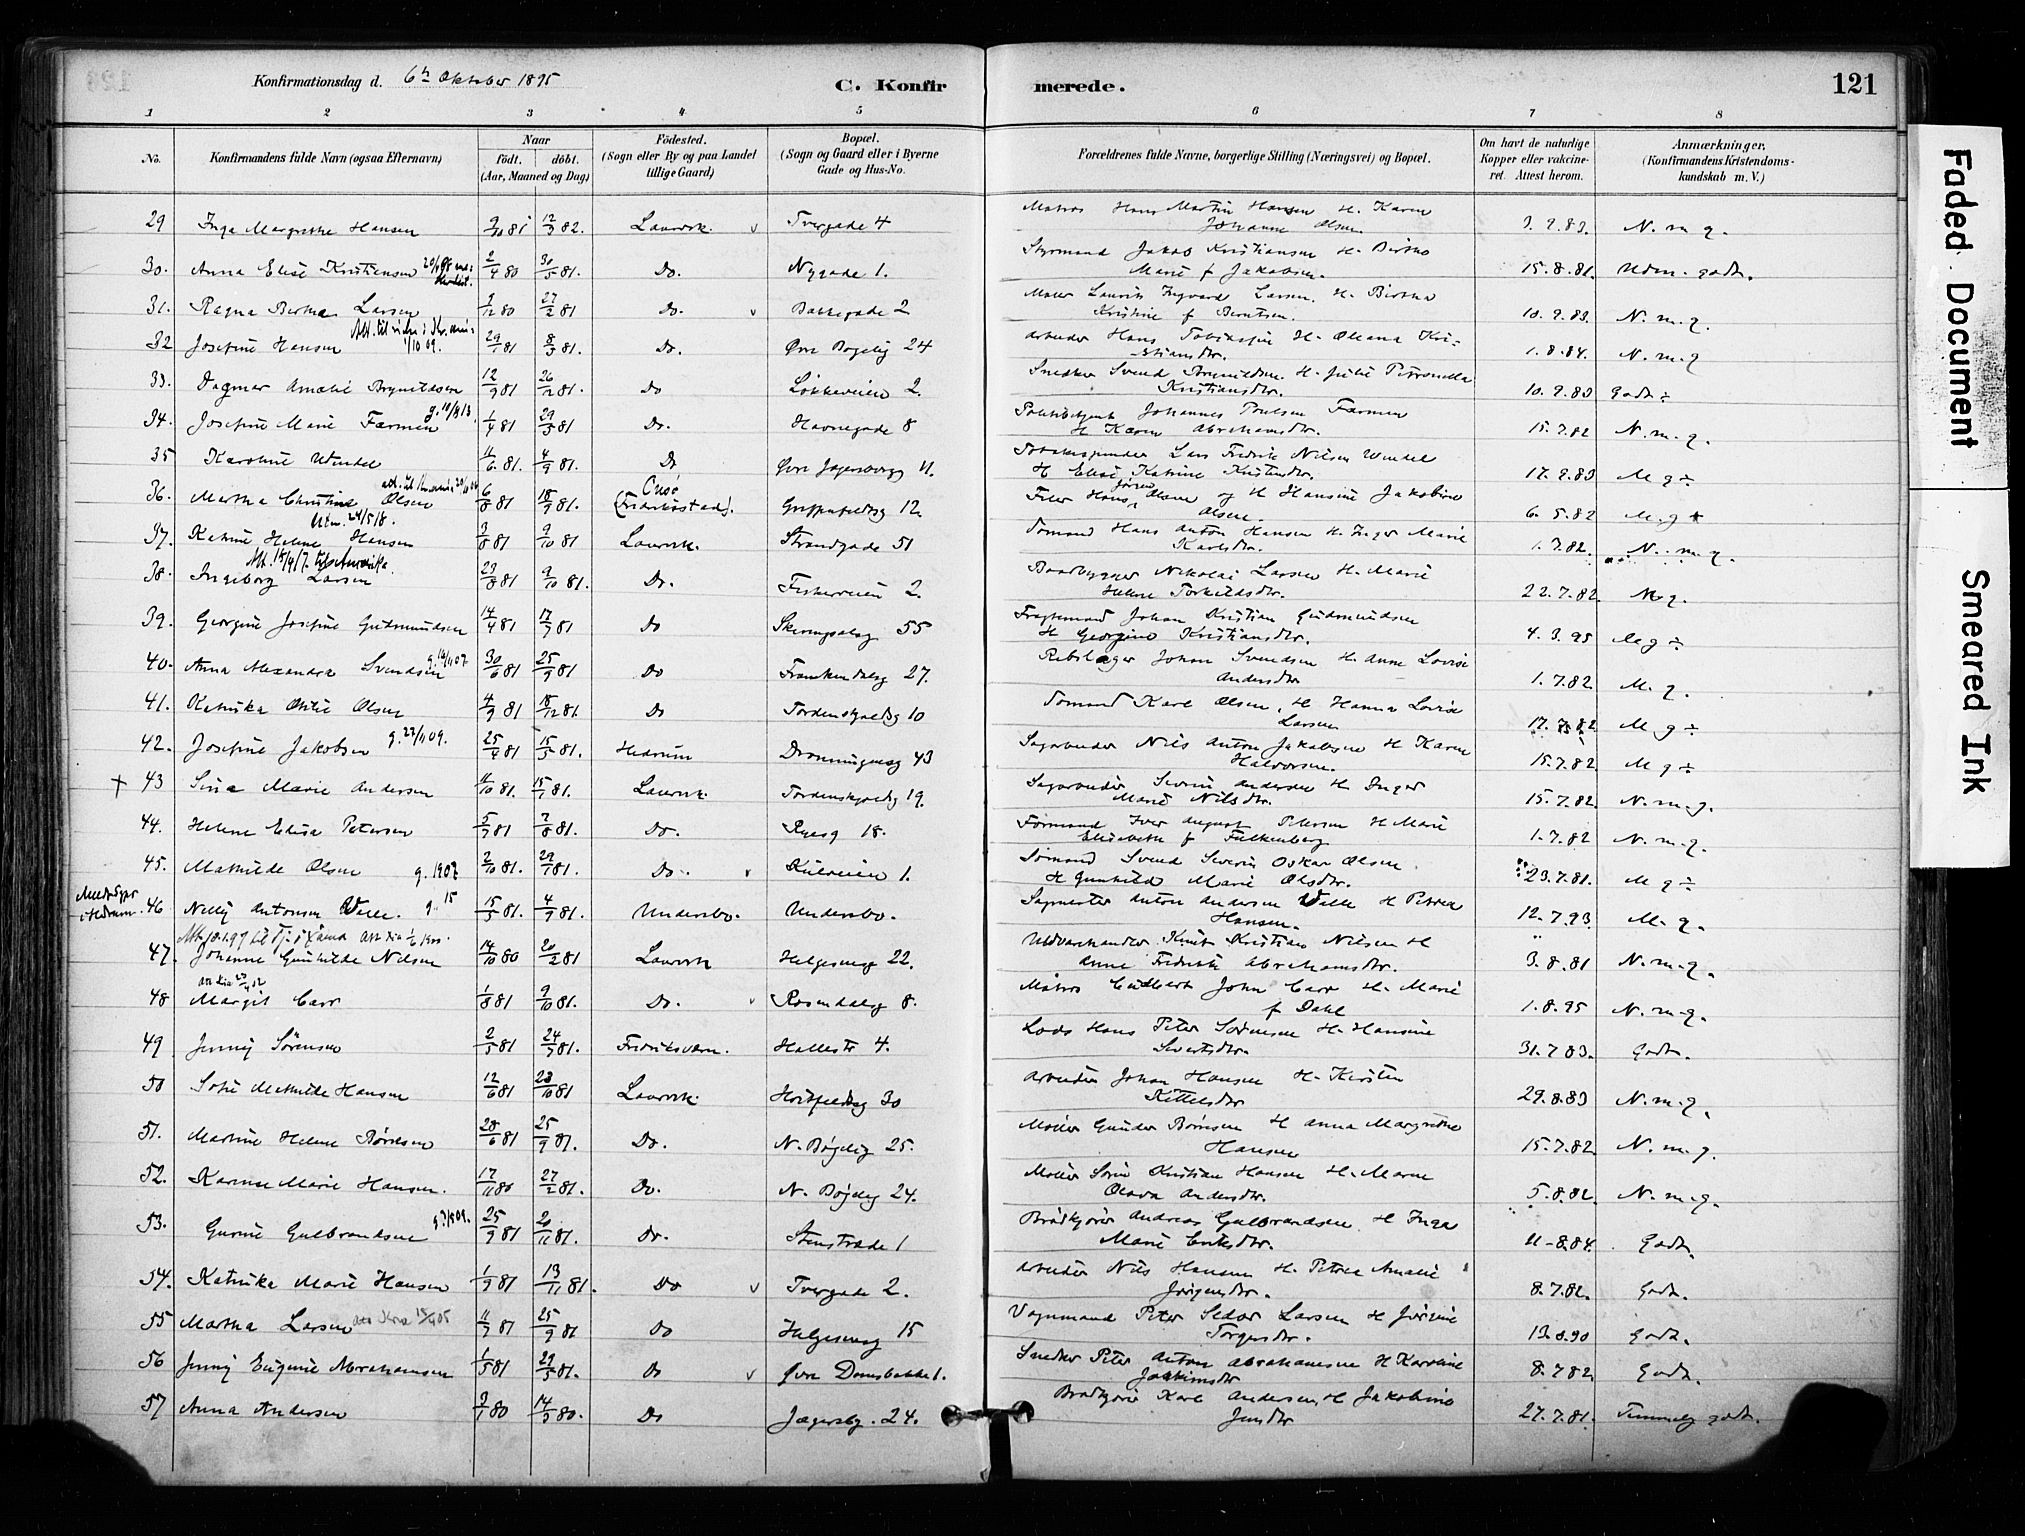 Konfirmationsdag d. 6te Oktober 1895 C. Konfir merede. 121
1 2 3 4 5 6 7 8
No. Konfirmandens fulde Navn (ogsaa Efternavn) Naar födt. döbt. (Aar, Maaned og Dag) Födested. (Sogn eller By og paa Landet tillige Gaard) Bopæl. (Sogn og Gaard eller i Byerne Gade og Hus-No. Forældrenes fulde Navne, borgerlige Stilling (Næringsvei) og Bopæl. Om havt de naturlige Kopper eller vakcineret. Attest herom. Anmærkninger, (Konfirmandens Kristendomskundskab m. V.)
29 Inga Margrethe Hansen 12/3 82. Laurvk. v Tvergade 4 Matros Hans Martin Hansen H. Karen Johanne Olsen 3.9.83. N. m. g.
30. Anna Elise Kristiansen 2/4 80 30/5 81. Do. Nygade 1. Styrmand Jakob Kristiansen H. Bertha Marie f Jakobsen. 15.8.81. Udm. godt.
31. Ragna Bertha Larsen 27/2 81 Do. v Bakkegade 2 Maler Laurits Ingvard Larsen. H. Bertha Kristine f Berntsen. 10.9.83. N. m. g.
32 Josefine Hansen 8/3 81. Do. Øvre Bøgelig 24 Arbeider Hans Tobiassen H. Oleana Kristiansdtr. 1.8.84. N. m. g
33. Dagmar Amalie Brynildsen 12/9 81 26/12 81. Do Løkkeveien 2. Snedker Svend Brynildsen. H. Julie Petronella Kristiansdtr. 10.9.83 Godt ÷
34. Josefine Marie Farmen 1/4 81 29/5 81 Do. Havnegade 8 Politibetjent Johannes Poulsen Farmen H Karen Abrahamsdtr. 15.7.82 N. m. g.
35 Karoline Wendel 11/6 81. 4/9 81. Do Øvre Jegersborgg 11. Lars Fredrik Nilsen Wendel H Elise Katrine 17.9.83 M g ÷
36. Martha Christine Olsen 6/8 81 18/9 81. Onsø (Fredriksstad). Griffenfeldsg 12. Hans Jørgen Olsen og H Hansine Jakobine Olsen 6.5.82 M. g +
37. Katrine Helene Hansen 3/8 81 9/10 81 Laurvk. Strandgade 51 Sømand Hans Anton Hansen H. Inger Marie Karlsdtr. 1.7.82. N. m. g.
38. Ingeborg Larsen 23/8 81 9/10 81. Do. Fiskerveien 2. Baadbygger Nikolai Larsen H. Marie Helene Torkildsdtr. 22.7.82. M g.
39. Georgine Josefine Gudmundsen 14/4 81 17/7 81 Do Skiringsalsg 55 Fragtemand Johan Kristian Gudmundsen H Georgine Kristiansdtr. 4.3.95 M g ÷
40. Anna Alexandra Svendsen 30/6 81 25/9 81 Do Frankendalsg 27. Rebslager Johan Svendsen H. Anne Lovise Andersdtr. 1.7.82. M. g.
41. Katrika Otilie Olsen 4/9 81 18/12 81. Do Tordenskjoldsg 10 Sømand Karl Olsen, H Hanna Lovise Larsen 17.7.82 M g ÷
42. Josefine Jakobsen 25/4 81 15/5 81. Hedrum Dronningensg 43 Sagarbeider Nils Anton Jakobsen H Karen Halvorsen. 15.7.82 M g ÷
† 43 Sina Marie Andersen 11/10 81. Laurvk. Tordenskjoldsg 19. Sagarbeider Severin Andersen H Inger Marie Nilsdtr. 15.7.82 N. m. g.
44. Helene Elisa Petersen 5/7 81 7/8 81. Do. Ryesg 18. Formand Iver August Petersen H Marie Elisabeth f Falkenberg 1.7.82 N. m. g.
45. Mathilde Olsen g. 1907 Do. v Kilveien 1. Sømand Svend Severin Oskar Olsen H Gunhild Marie Olsdtr. 23.7.81. M g ÷
46 Nelly Antonsen Valle. g. 15 15/5 81. 4/9 81. Undersbo. Undersbo. Sagmester Anton Andersen Valle H Petrea Hansen. 12.7.93. M. g.
47. Johanne Gunhilde Nilsen 14/10 80 20/2 81 Laurvk Helgesensg 22. Uldvarehandler Knut Kristian Nilsen H Anne Fredrikke Abrahamsdtr. 3.8.81 N. m. g.
48 Margit Carr 1/8 81 9/10 81. Do. v Rosendalsg 8. Matros Cudbert John Carr H. Marie f Dahl 1.8.95 N. m. g.
49 Jenny Sörensen 2/5 81 24/7 81. Fredriksværn. Hallestr 4. Lods Hans Peter Sørensen H. Hansine Sivertsdtr. 31.7.83. Godt.
50 Sofie Mathilde Hansen 12/6 81 23/10 81 Laurvk. Hvidtfeldsg 30 Arbeider Johan Hansen H. Kirsten Kittelsdtr 29.8.83 N. m. g.
51. Martine Helene Børresen 28/6 81 25/9 81. Do. N. Bøgelig 25. Møller Gunder Børresen H Anna Margrethe Hansen 15.7.82 N. m. g.
52. Karense Marie Hansen. 17/11 80 27/2 81. Do. N. Bøgelig 24. Møller Søren Kristian Hansen H. Maren Olava Andersdtr. 5.8.82. N. m. g.
53. Gurine Gulbrandsen 25/9 81 20/11 81. Do. Stenstræde 1 Brødkjører Andreas Gulbrandsen. H Inga Marie Eriksdtr. 11-8.84. Godt.
54. Katrika Marie Hansen 1/9 81 13/11 81. Do v Tvergade 2. Arbeider Nils Hansen H. Petrea Amalie Jørgensdtr. 8.7.82. Godt.
55 Martha Larsen 11/7 81 25/9 81 Do Helgesensg 15 Vognmand Peter Larsen H Jørgine Torgersdtr. 13.8.90 Godt.
56 Jenny Eugenie Abrahamsen 1/5 81 29/5 81. Do v Øvre Damsbakke 1. Snedker Peter Anton Abrahamsen H Karoline Joakimsdtr 8.7.82. Godt.
57 Anna Andersen 14/3 80. Do Jægersbg. 24. Brødkjører Karl Andersen, H Jakobine Jensdtr 27.7.81. Temmelig godt.
Faded Document
Smeared Ink